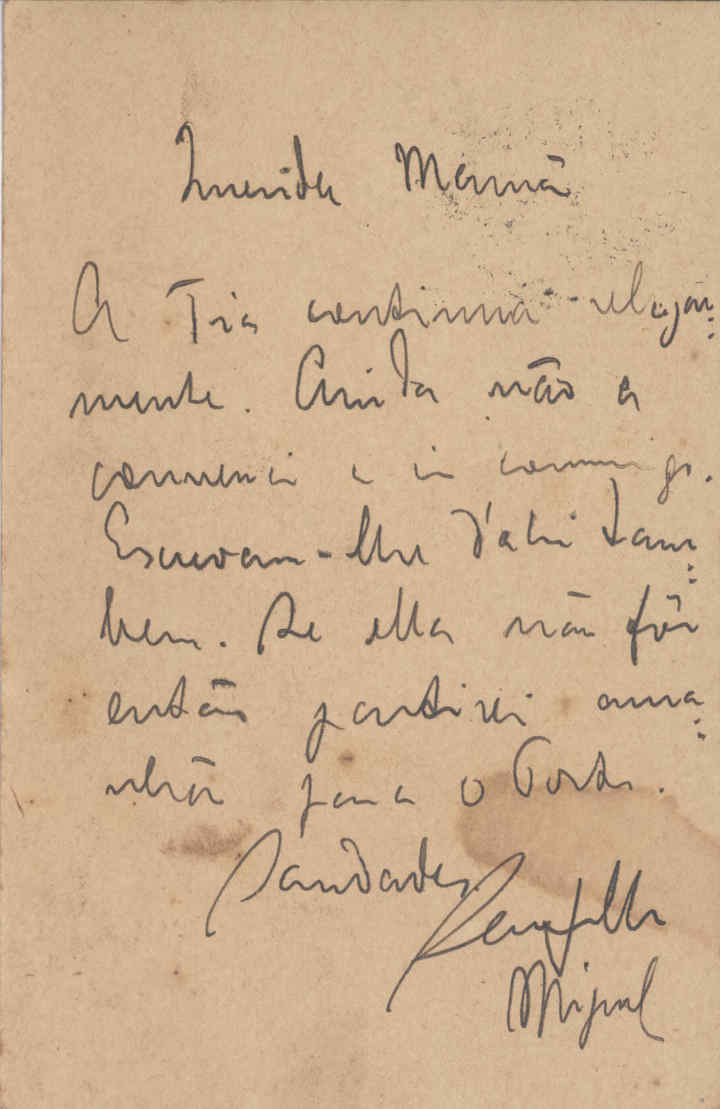 Querida Mamã
A Tia continua
mente. Ainda não a
convenci a ir commigo.
Escrevam-lhe d'ahi tam:
bem. Se ella não fôr
então partirei ama:
nhã para o Porto.
Saudades
Seu filho
Miguel